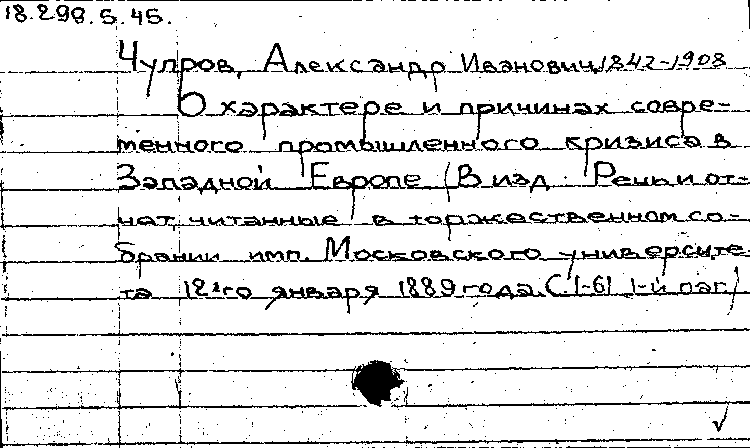 18.299.5.45.
Чупров, Александр Иванович, 1842-1908
О характере и причинах совре-
менного промышленного кризиса в
Западной Европе (В изд. Речь и от-
чет, читанные в торжественном со-
брании имп. Московского университе-
та 12-го января 1889 года. С. 1-61 1-й паг.)